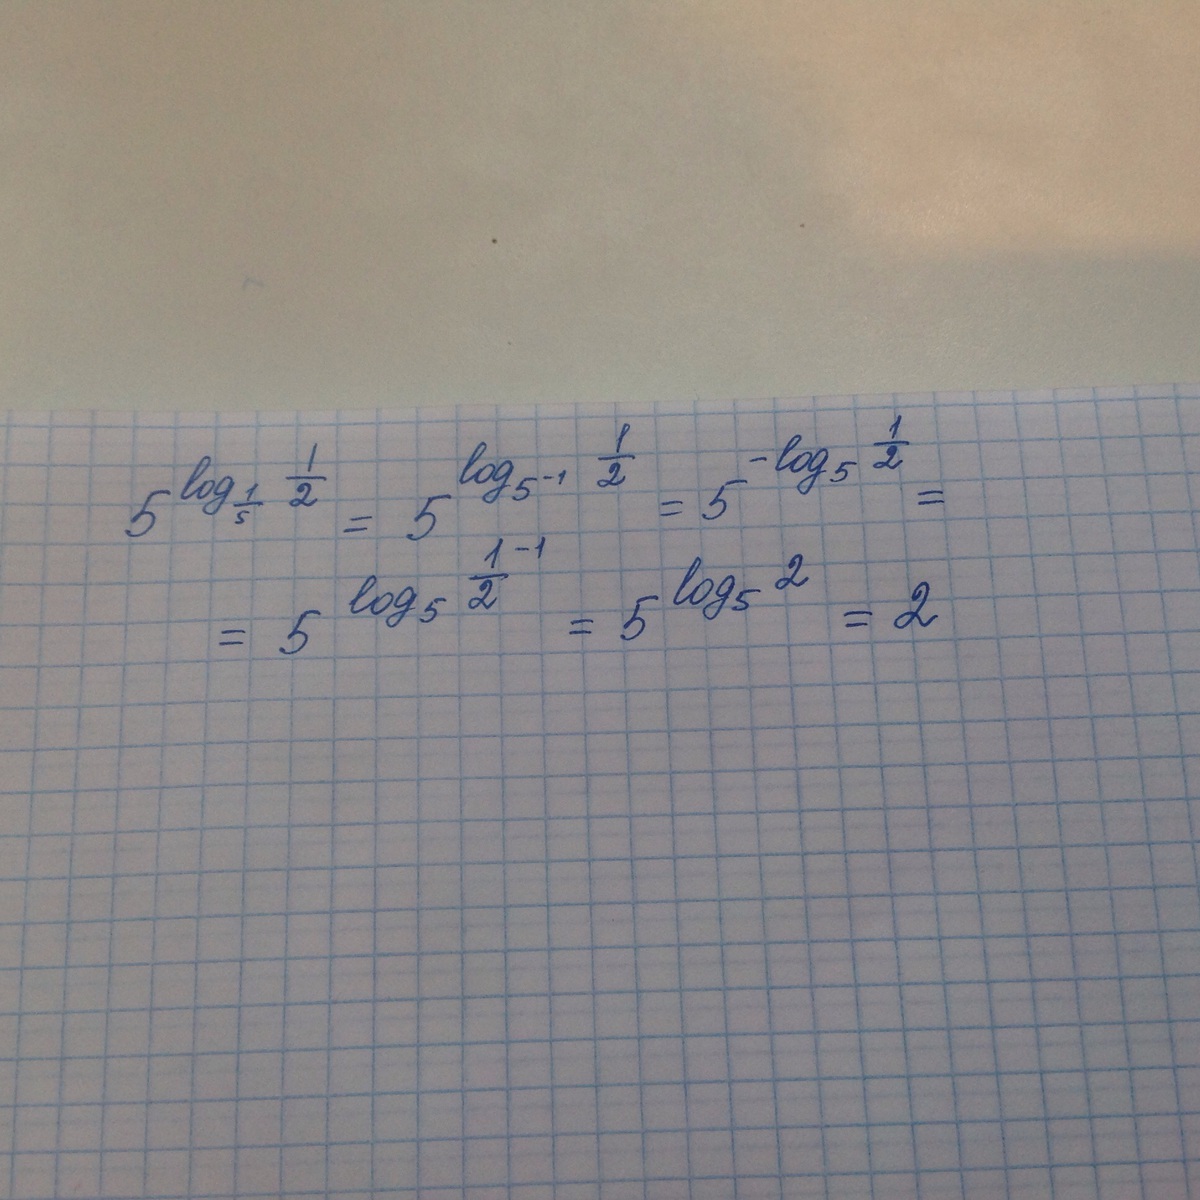 5^{log_{1/5} 1/2} = 5^{log_{5^{-1}} 1/2} = 5^{-log_5 1/2} =
= 5^{log_5 1/2^{-1}} = 5^{log_5 2} = 2